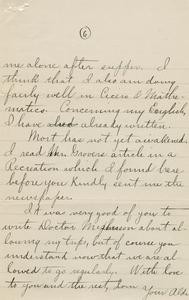 (6)
me alone after supper. I
think that I also am doing
fairly well in Cicero & Mathe-
matics. Concerning my English,
I have already written.
Mort has not yet awakened.
I read Mr. Grovers article in a
Recreation which I found here
before you kindly sent me the
newspaper.
It was very good of you to
write Doctor about al-
lowing my trips, but of course you
understand now that we are al-
lowed to go regularly. With love
to you and the rest, I am
Your